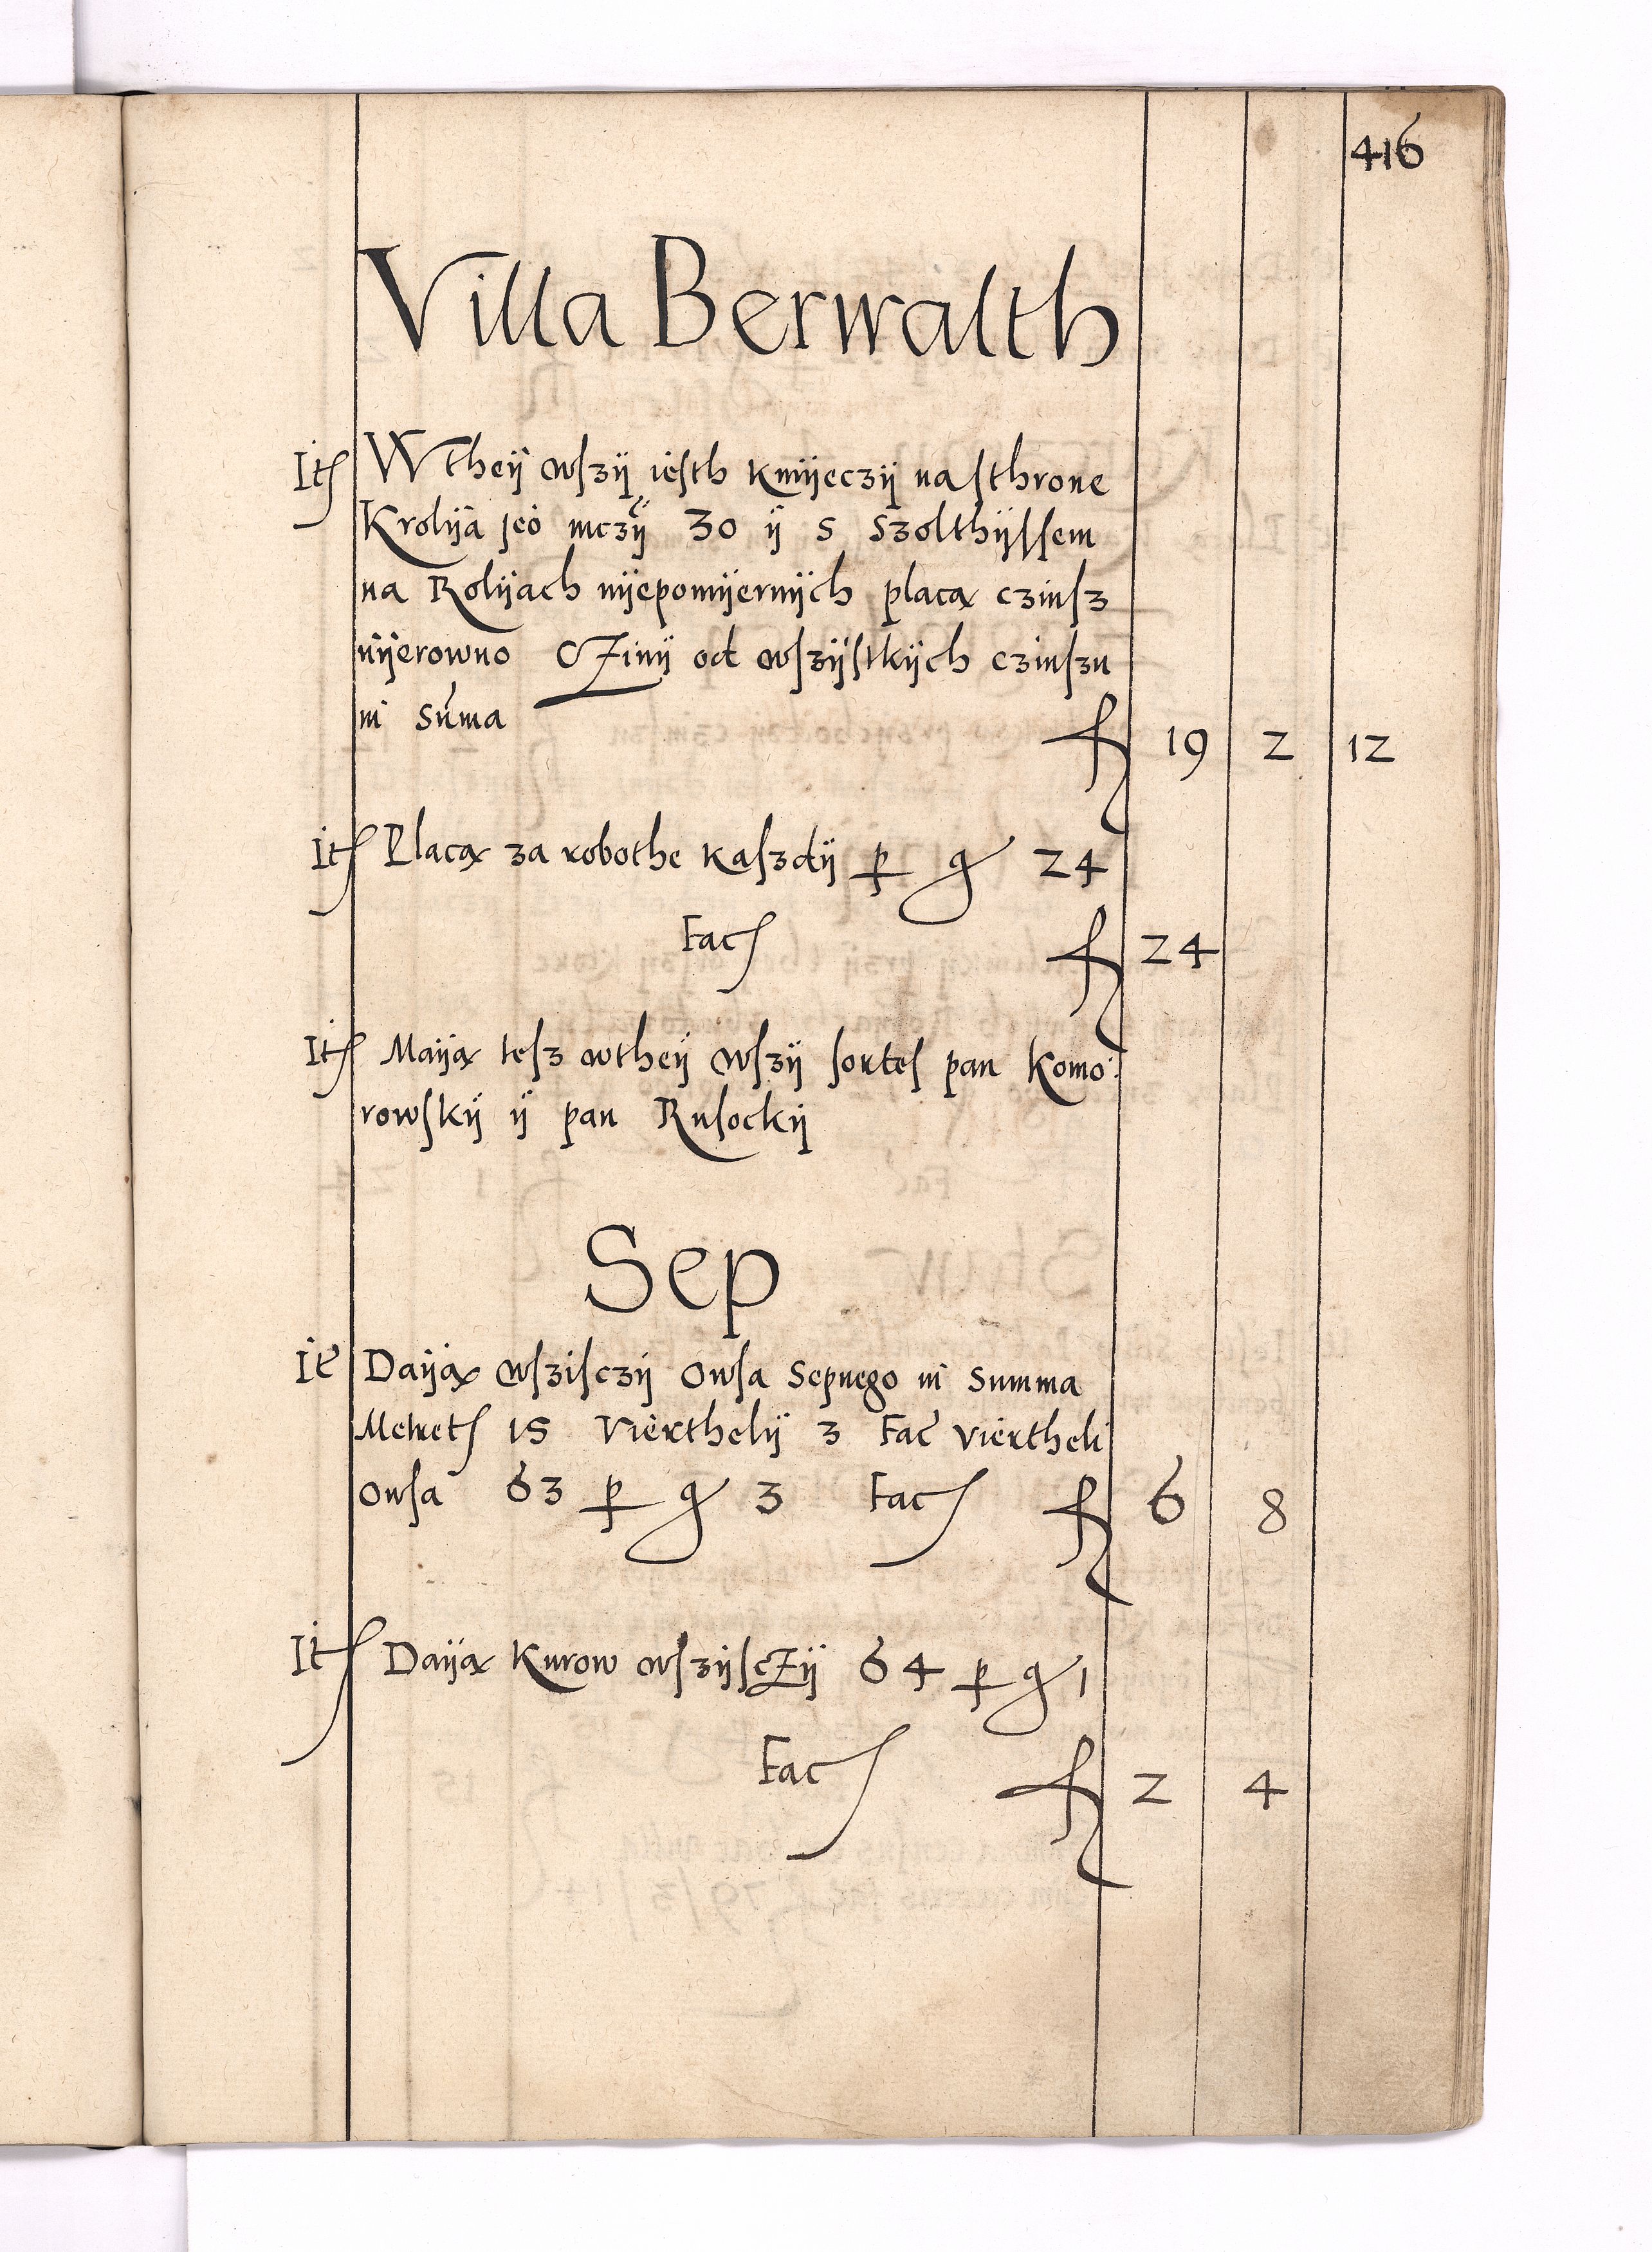 416
Villa Berwalth
It W theÿ wszÿ iesth kmÿeczÿ na sthrone
Krolÿa jeo mczÿ 30 ÿ s szolthÿssem
na Rolÿach nÿepomÿernÿch placą czinsz
nÿerowno CZinÿ od wszÿstkÿch czinszu
in sūma f 19 2 12
It Placą za robothe kaszdÿ p g 24
Fac f 24
It Maÿą tesz wtheÿ wszÿ sortes pan Komo:
rowskÿ ÿ pan Rusockÿ
Sep
It Daÿą wszisczÿ owsa sepnego in summa
Metret 15 vierthelÿ 3 Fac viertheli
owsa 63 p g 3 Fac f 6 8
It Daÿą Kurow wszÿscZÿ 64 p g 1
Fac f 2 4